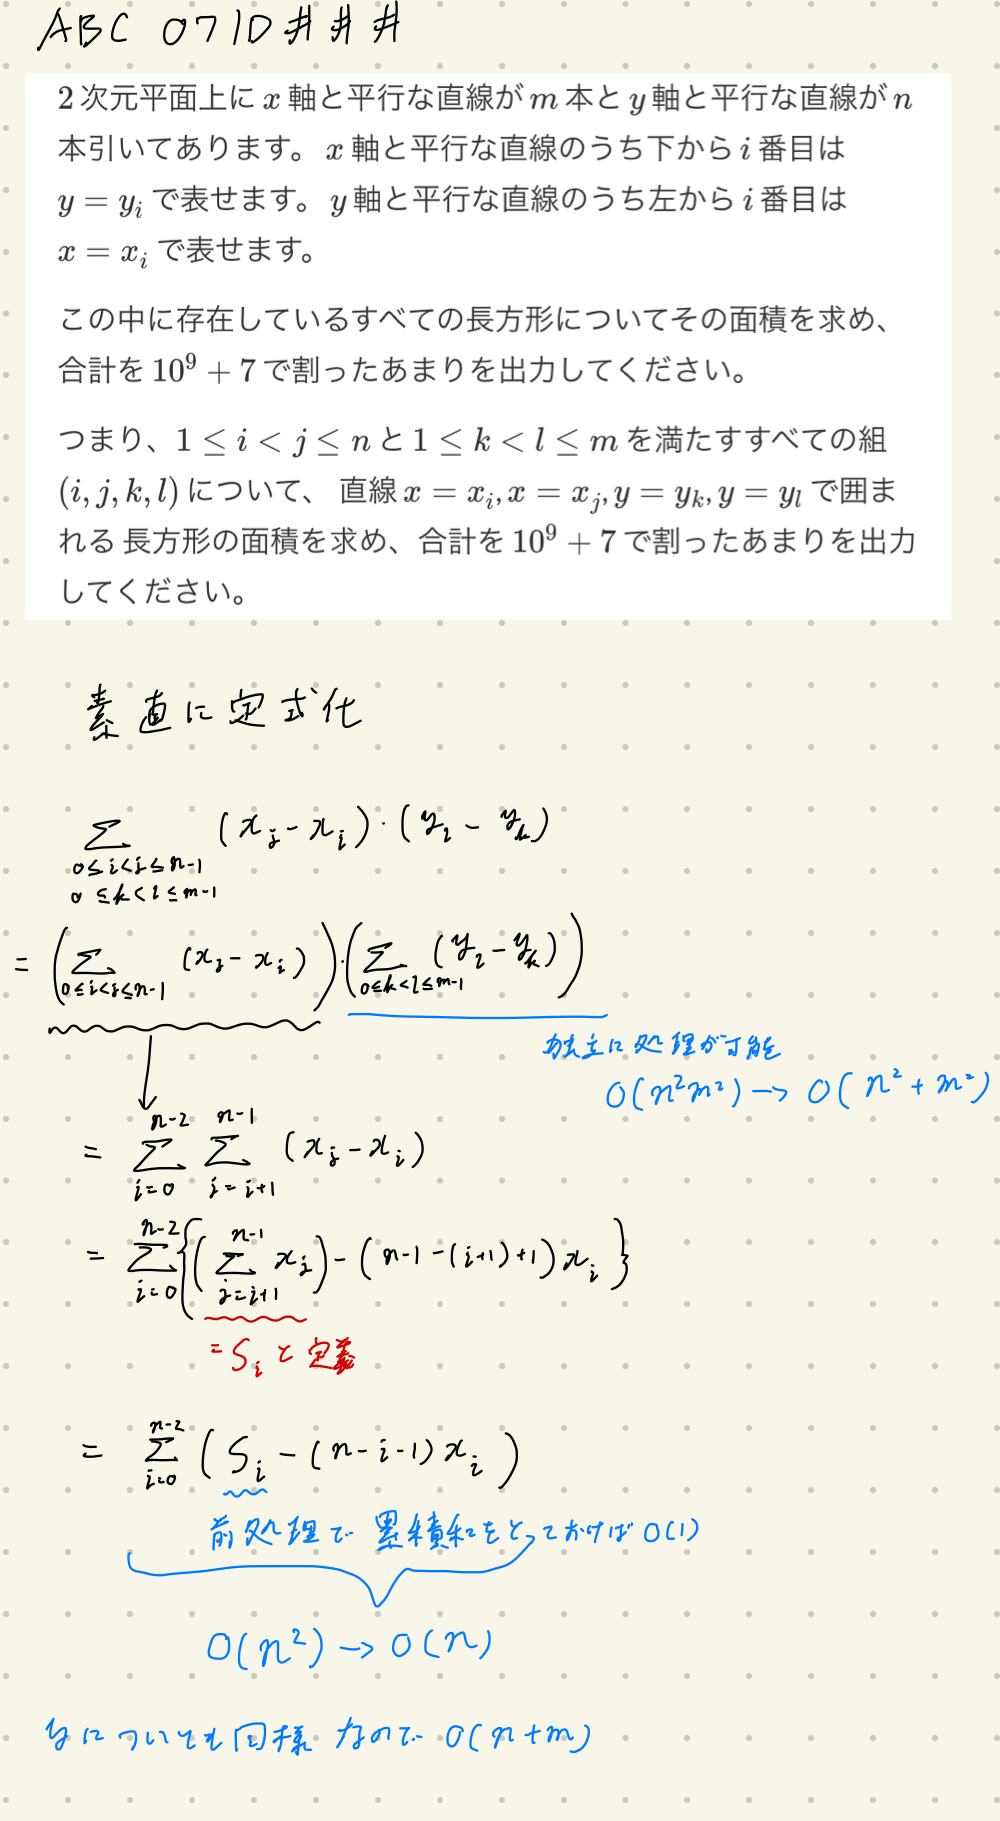 ABC 071D###
2 次元平面上に x 軸と平行な直線が m 本と y 軸と平行な直線が n
本引いてあります。 x 軸と平行な直線のうち下から i 番目は
y = y_i で表せます。 y 軸と平行な直線のうち左から i 番目は
x = x_i で表せます。
この中に存在しているすべての長方形についてその面積を求め、
合計を 10^9 + 7 で割ったあまりを出力してください。
つまり、1 ≤ i < j ≤ n と 1 ≤ k < l ≤ m を満たすすべての組
(i, j, k, l) について、 直線 x = x_i, x = x_j, y = y_k, y = y_l で囲ま
れる 長方形の面積を求め、合計を 10^9 + 7 で割ったあまりを出力
してください。
素直に定式化
∑_{0≤i<j≤n-1, 0≤k<l≤m-1} (x_j - x_i)・(y_l - y_k)
= (∑_{0≤i<j≤n-1} (x_j - x_i))・(∑_{0≤k<l≤m-1} (y_l - y_k))
独立に処理が可能
O(n²m²) → O(n² + m²)
= ∑_{i=0}^{n-2} ∑_{j=i+1}^{n-1} (x_j - x_i)
= ∑_{i=0}^{n-2} {(∑_{j=i+1}^{n-1} x_j) - (n-1-(i+1)+1) x_i}
= S_i と定義
= ∑_{i=0}^{n-2} (S_i - (n-i-1) x_i)
前処理で 累積和をとっておけば O(1)
O(n²) → O(n)
yについても同様なので O(n+m)